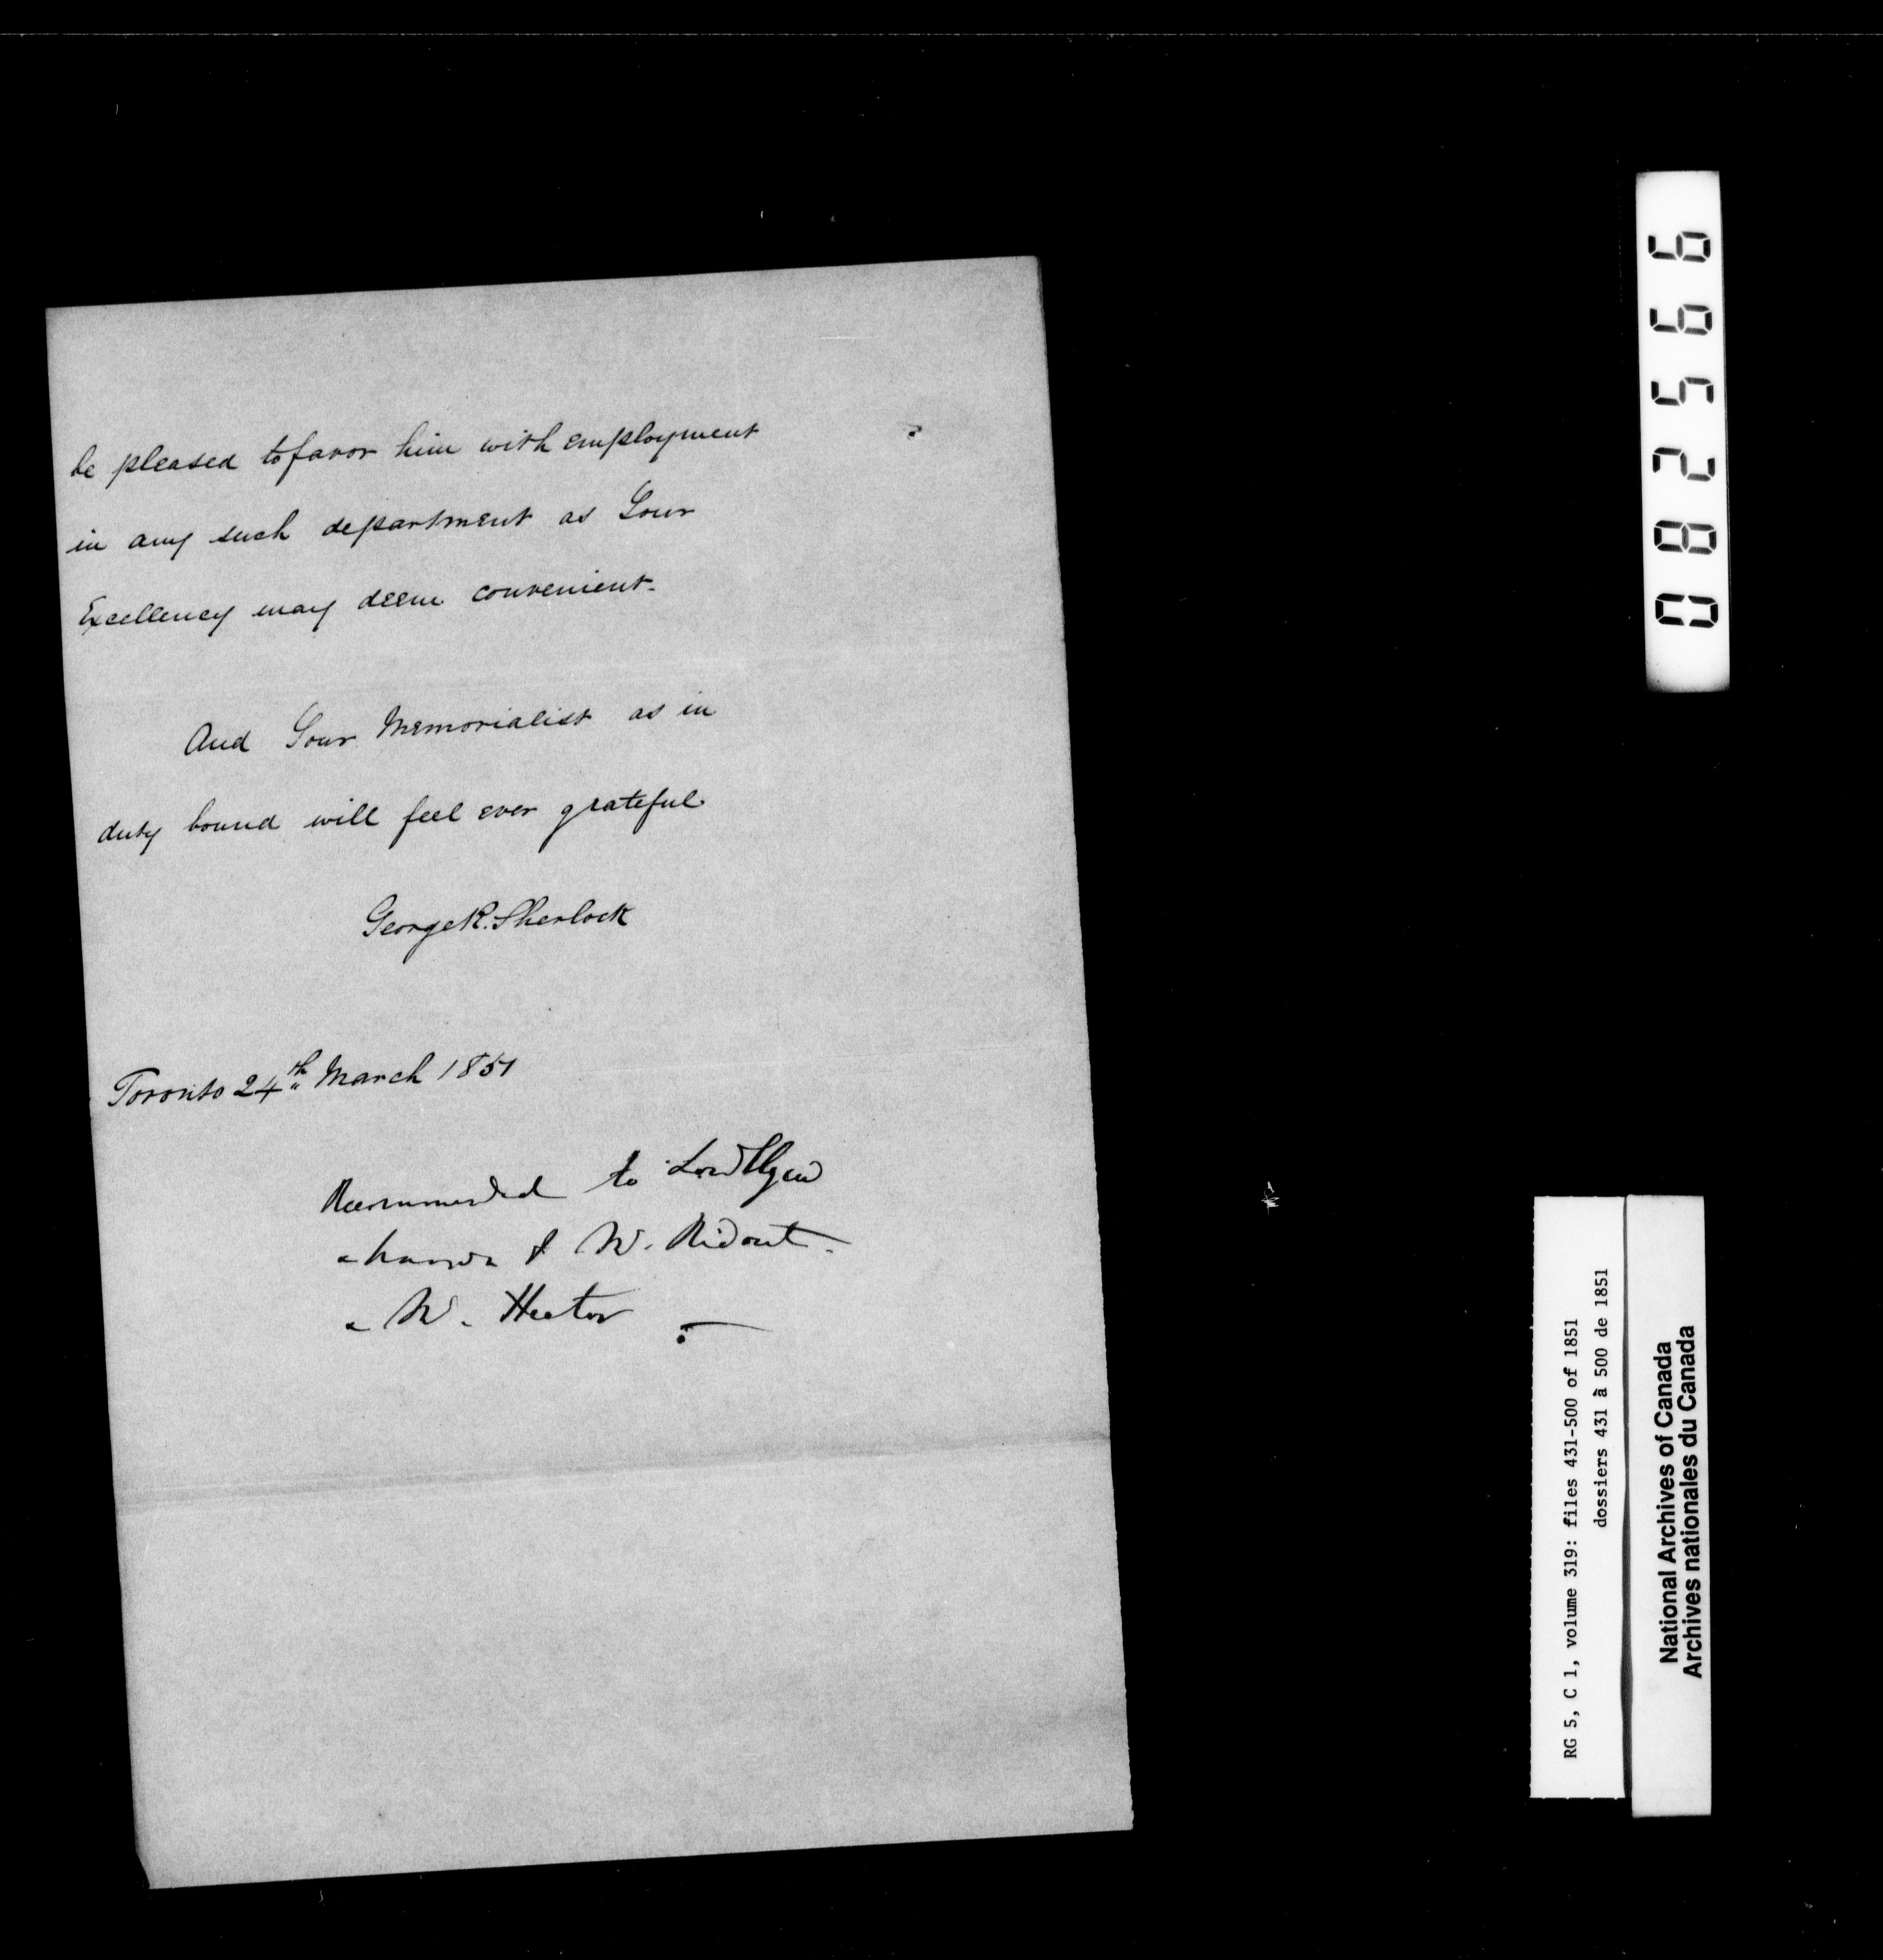 be pleased to favor him with employment
in any such department as Your
Excellency may deem convenient.
And Your Memorialist as in
duty bound will feel ever grateful
George R. Sherlock
Toronto 24th March 1851
Recommended to Lord Elgin
W. Ridout.
W. Hector
082566
RG 5, C 1, volume 319: files 431-500 of 1851
dossiers 431 à 500 de 1851
National Archives of Canada
Archives nationales du Canada